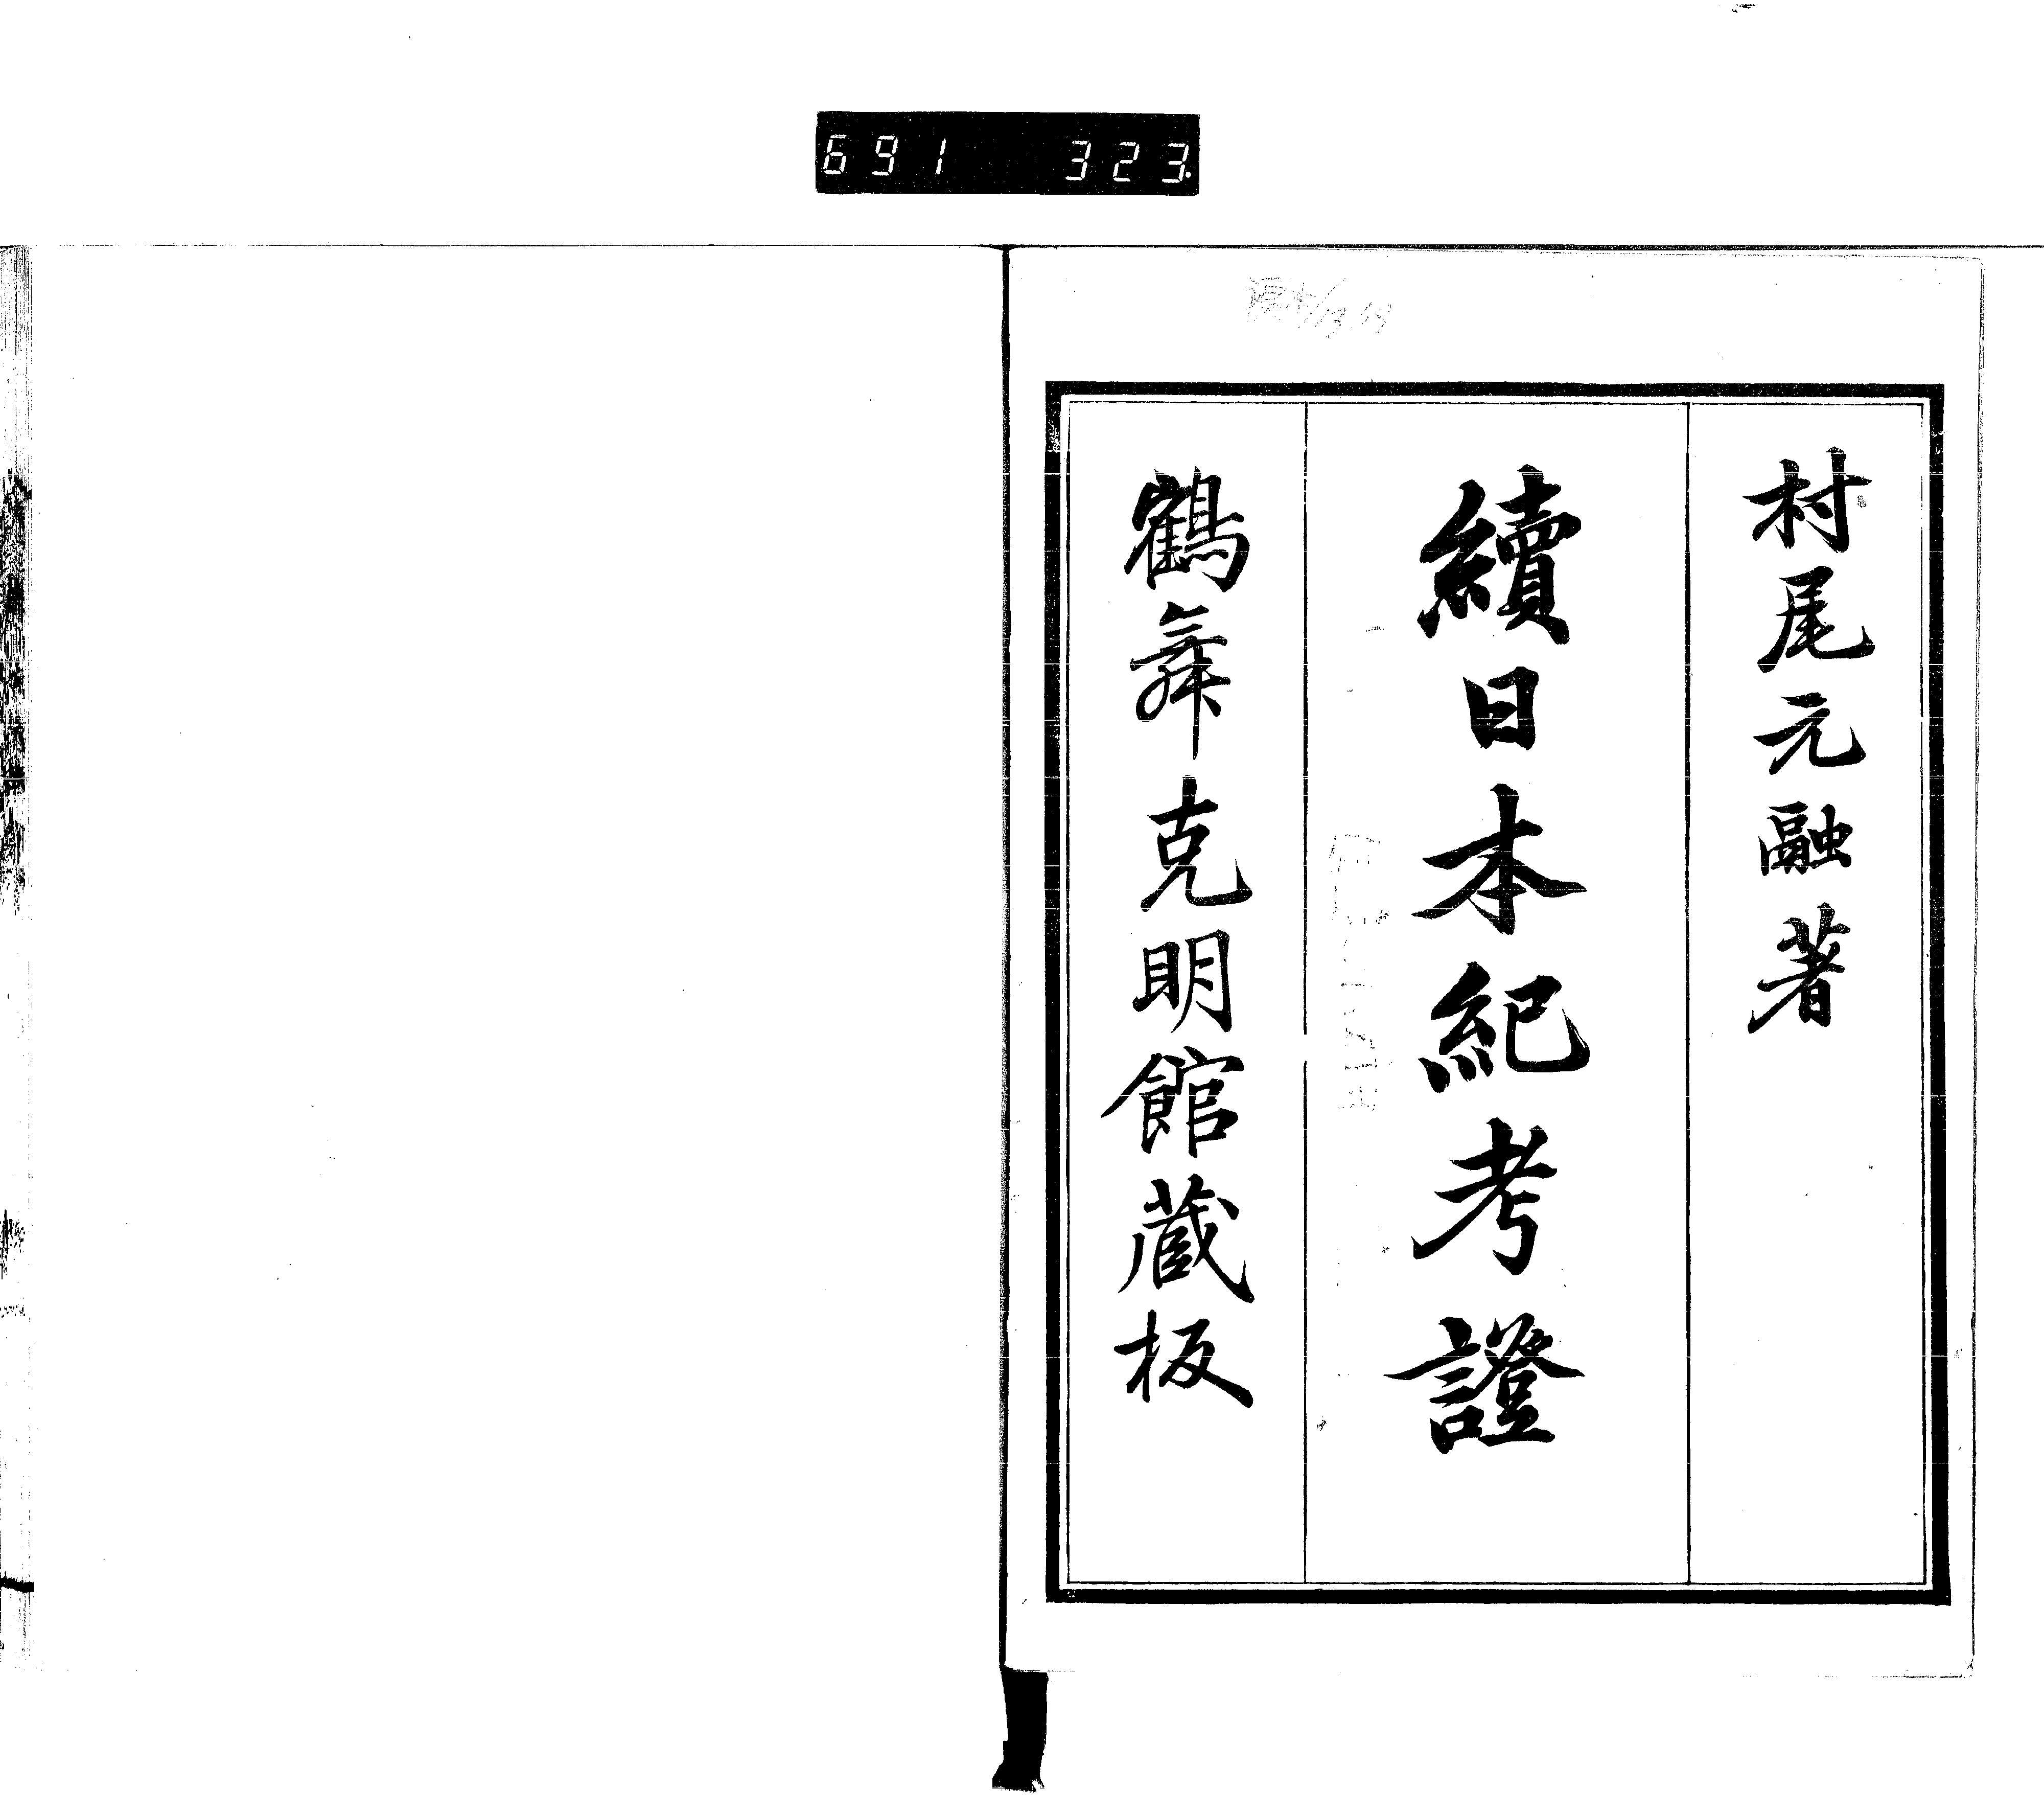 691 323
村尾元融著
續日本紀考證
鶴舞克明館蔵板